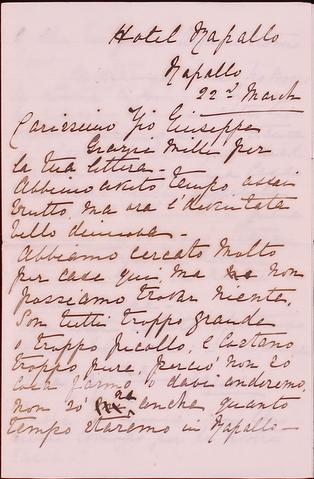 Hotel Rapallo
Rapallo
22nd March
Carissimo Zio Giuseppe
Grazie mille per
la tua lettera -
Abbiamo avuto tempo assai
brutto, ma ora è diventata
bello
Abbiamo cercato molto
per case qui, ma non
possiamo trovar niente.
Son tutti troppo grande
o troppo piccollo, e costano
troppo pure, perciò non sò
cosa o dove anderemo,
non sò anche quanto
tempo staremo in Rapallo -